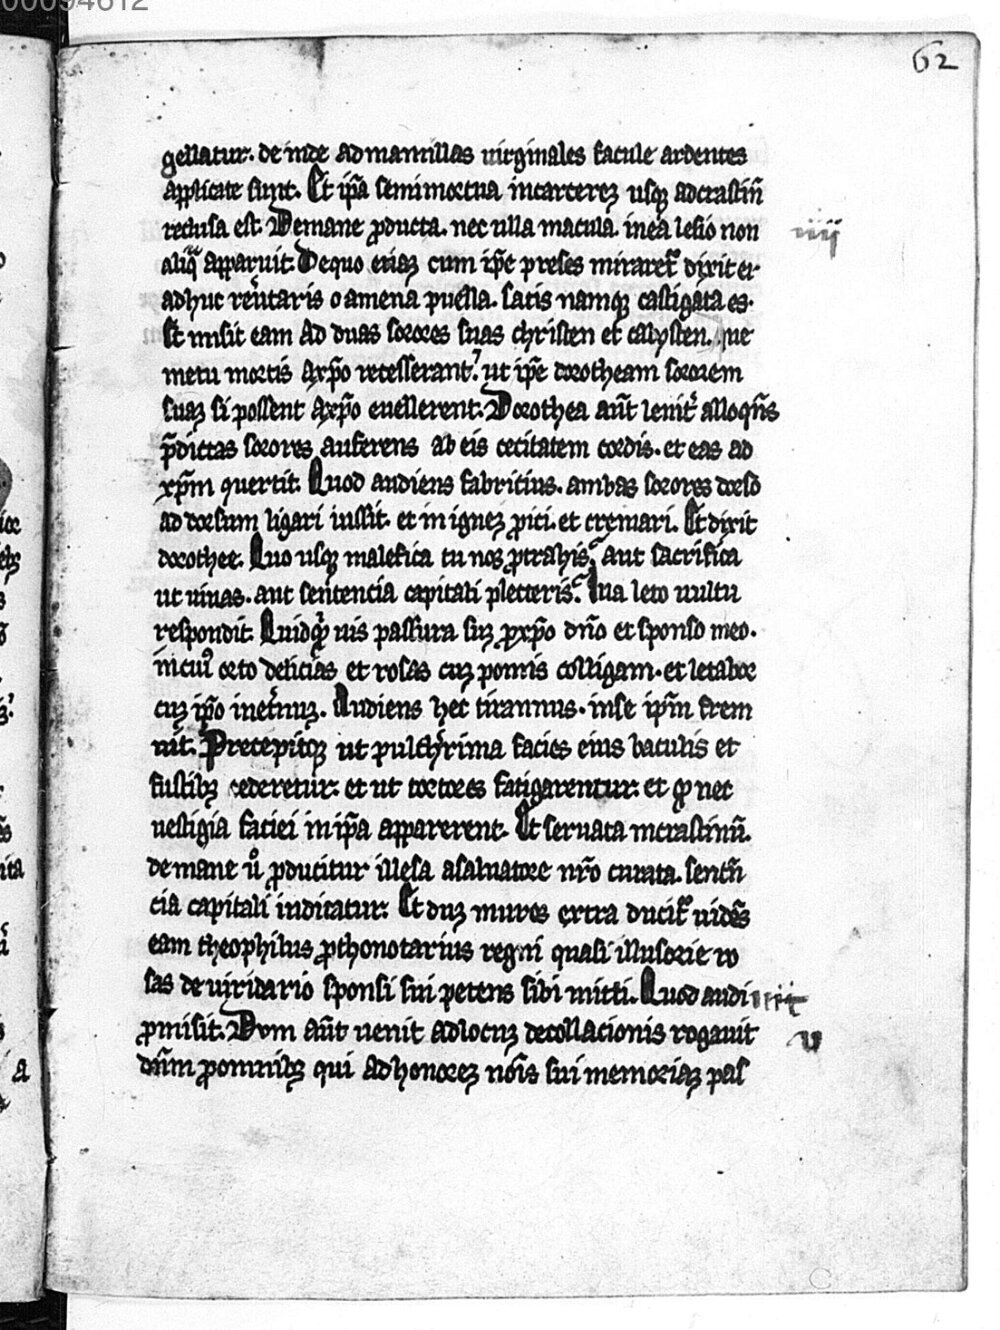 00094612
62
gellatur. de inde ad mamillas uirginales facule ardentes
applicate sunt. Et ip̄a semimortua incarcereʒ usqʒ adcrastin̄
reclusa est. Demane ꝓducta. nec ulla macula inea lesio non
iiij
aliq̄ apparuit. Dequo etiaʒ cum ip̄e preses miraret᷑ dixit ei
adhuc reu᷑taris o amena puella. satis namqʒ castigata es.
Et misit eam ad duas sorores suas christen et calysten. que
metu mortis axp̄o recesserant. ut ip̄e dorotheam sororem
suaʒ si possent axp̄o euellerent. Dorothea aūt lenit᷑ alloqn̄s
p̄dictas sorores auferens ab eis cecitatem cordis. et eas ad
xp̄m ꝯuertit. Quod audiens fabritius. ambas sorores dorso
ad dorsum ligari iussit. et in igneʒ ꝓici. et cremari. Et dixit
dorothee. Quo usqʒ malefica tu nos ꝓtrahis. aut sacrifica
ut uiuas. aut sentencia capitali plecteris. Illa leto uultu
respondit. Quidqͥd uis passura suʒ ꝓxp̄o dn̄o et sponso meo.
in cuiꝰ orto delicias et rosas cuʒ pomis colligam. et letabor
cuʒ ip̄o inet᷑nuʒ. Audiens hec tirannus. inse ip̄m frem
uit. Precepitqʒ ut pulch᷑rima facies eius baculis et
fustibʒ cederetur. et ut tortores fatigarentur. et ꝙ nec
uestigia faciei in ip̄a apparerent. Et seruata incrastinū.
demane u᷑o ꝓducitur illesa asaluatore nr̄o curata. senten̄
cia capitali iudicatur. Et duʒ muros extra ducit᷑ uidēs
eam theophilus ꝓthonotarius regni quasi illusorie ro
sas de uiridario sponsi sui petens sibi mitti. Quod audi
ꝓmisit. Dvm aūt uenit adlocuʒ decollacionis rogauit
v
dn̄m ꝓomnibʒ qui ad honoreʒ nōis sui memoriaʒ pas